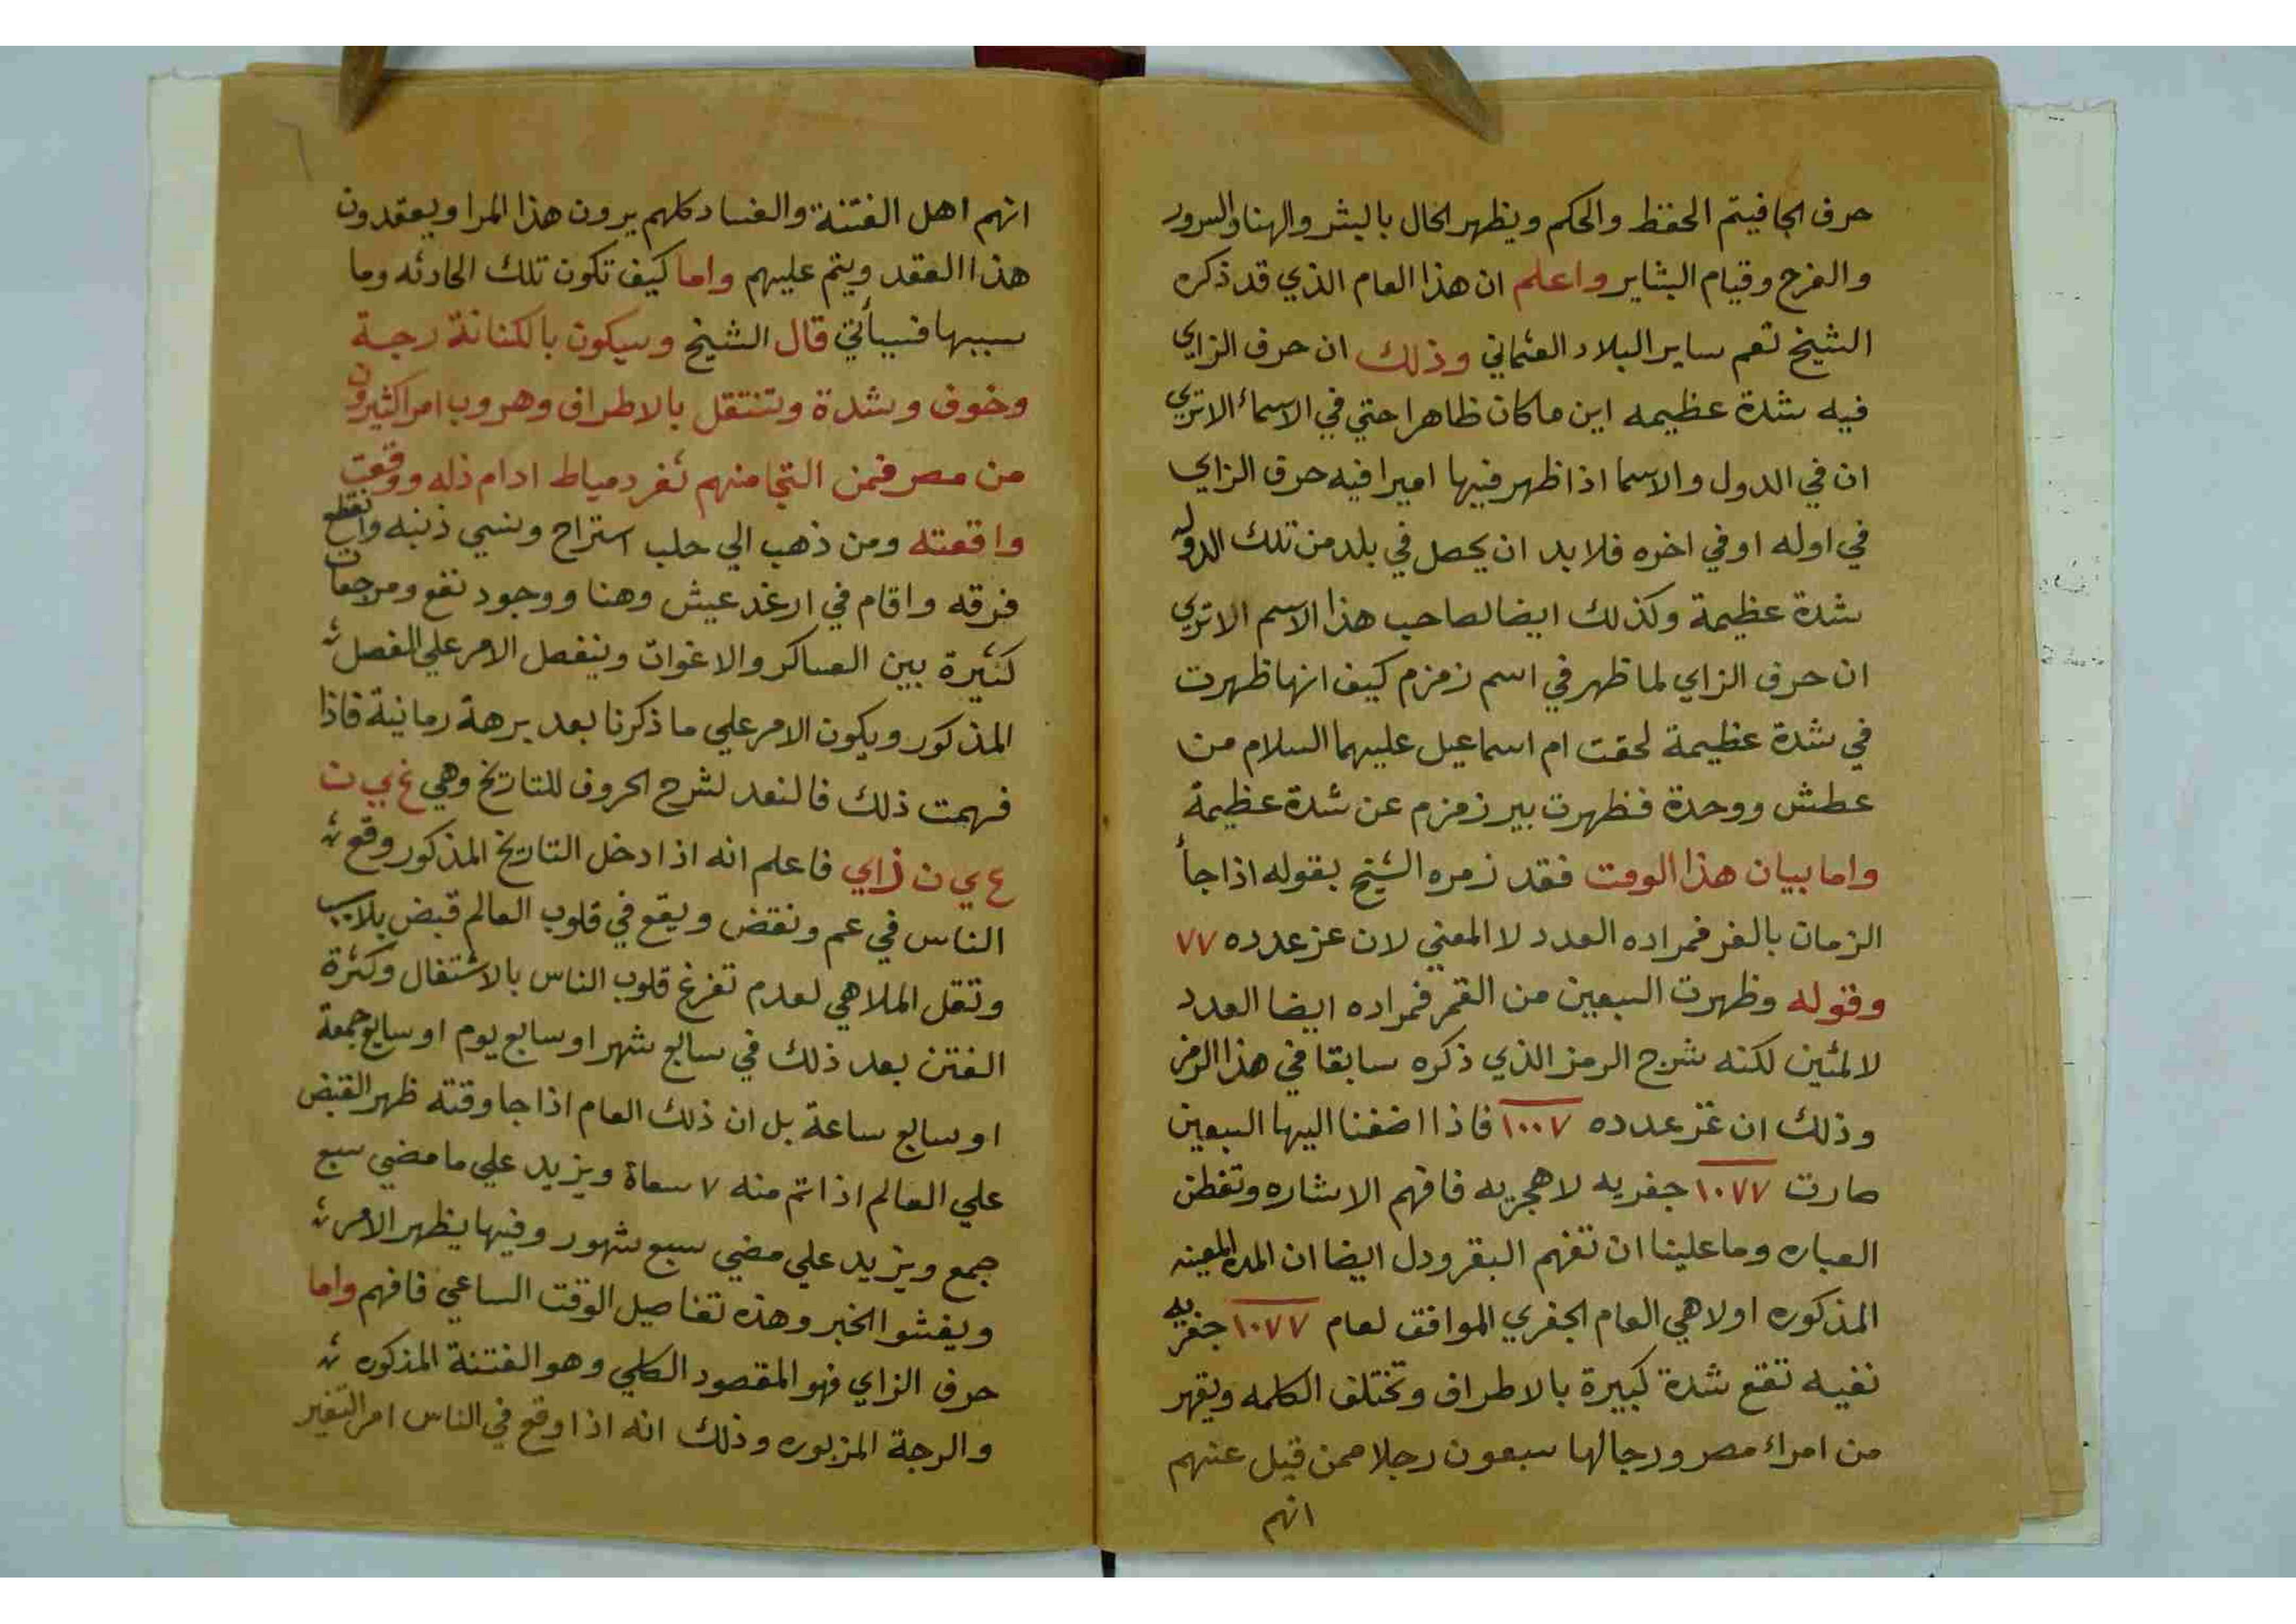 حرف الجا فيتم الحفظ والحكم ويظهر الحال بالبشر والهنا والسرور
والفرح وقيام البشاير واعلم ان هذا العام الذي قد ذكره
الشيخ تعم ساير البلاد العثماني وذلك ان حرف الزاي
فيه شدة عظيمه اين ماكان ظاهرا حتي في الاسماء الا تري
ان في الدول والاسما اذا ظهر فيها اميرا فيه حرف الزاي
في اوله او في اخره فلا بد ان يحصل في بلد من تلك الدوله
شدة عظيمة وكذلك ايضا لصاحب هذا الاسم الا تري
ان حرف الزاي لما ظهر في اسم زمزم كيف انها ظهرت
في شدة عظيمة لحقت ام اسماعيل عليهما السلام من
عطش ووحدة فظهرت بير زمزم عن شدة عظيمة
واما بيان هذا الوقت فقد زمره الشيخ بقوله اذا جأ
الزمان بالغز فمراده العدد لا المعني لان عز عدده ٧٧
وقوله وظهرت السبعين من القمر فمراده ايضا العدد
لا لمئين لكنه شرح الرمز الذي ذكره سابقا في هذا الرمز
وذلك ان غز عدده ١٠٠٧ فاذا اضفنا اليها السبعين
صارت ١٠٧٧ جفريه لا هجريه فافهم الاشاره وتفطن
العباره وما علينا ان تفهم البقر ودل ايضا ان المده المعينه
المذكوره اولا هي العام الجفري الموافق لعام ١٠٧٧ جفريه
نفيه تقع شدة كبيرة بالاطراف وتختلف الكلمه ويقهر
من امراء مصر ورجالها سبعون رجلا ممن قيل عنهم
انهم
انهم اهل الفتنة والفساد كلهم يرون هذا المرا ويعقدون
هذا العقد ويتم عليهم واما كيف تكون تلك الحادثه وما
سببها فسيأتي قال الشيخ وسيكون بالكنانة رجة
وخوف وشدة وتنتقل بالاطراف وهروب امرا كثيرون
من مصر فمن التجا منهم ثغر دمياط ادام ذله ووقعت
واقعته ومن ذهب الي حلب استراح ونسي ذنبه وانقطع
فرقه واقام في ارغد عيش وهنا ووجود نفع ومرجعات
كثيرة بين العساكر والاغوات وينفصل الامر علي الفصل
المذكور ويكون الامر علي ما ذكرنا بعد برهة زمانية فاذا
فهمت ذلك فالنعد لشرح الحروف للتاريخ وهي غ ي ن
ع ي ن زاي فاعلم انه اذا دخل التاريخ المذكور وقع
الناس في عم ونقض ويقع في قلوب العالم قبض بلا سبب
وتقل الملاهي لعدم تفرغ قلوب الناس بالاشتغال وكثرة
الفتن بعد ذلك في سابع شهر او سابع يوم او سابع جمعة
او سابع ساعة بل ان ذلك العام اذا جا وقته ظهر القبض
علي العالم اذا تم منه ٧ سعاة ويزيد علي ما مضي سبع
جمع ويزيد علي مضي سبع شهور وفيها يظهر الامر
ويفشوا الخبر وهذه تفاصيل الوقت الساعي فافهم واما
حرف الزاي فهو المقصود الكلي وهو الفتنة المذكوره
والرجة المزبوره وذلك انه اذا وقع في الناس امر التغير